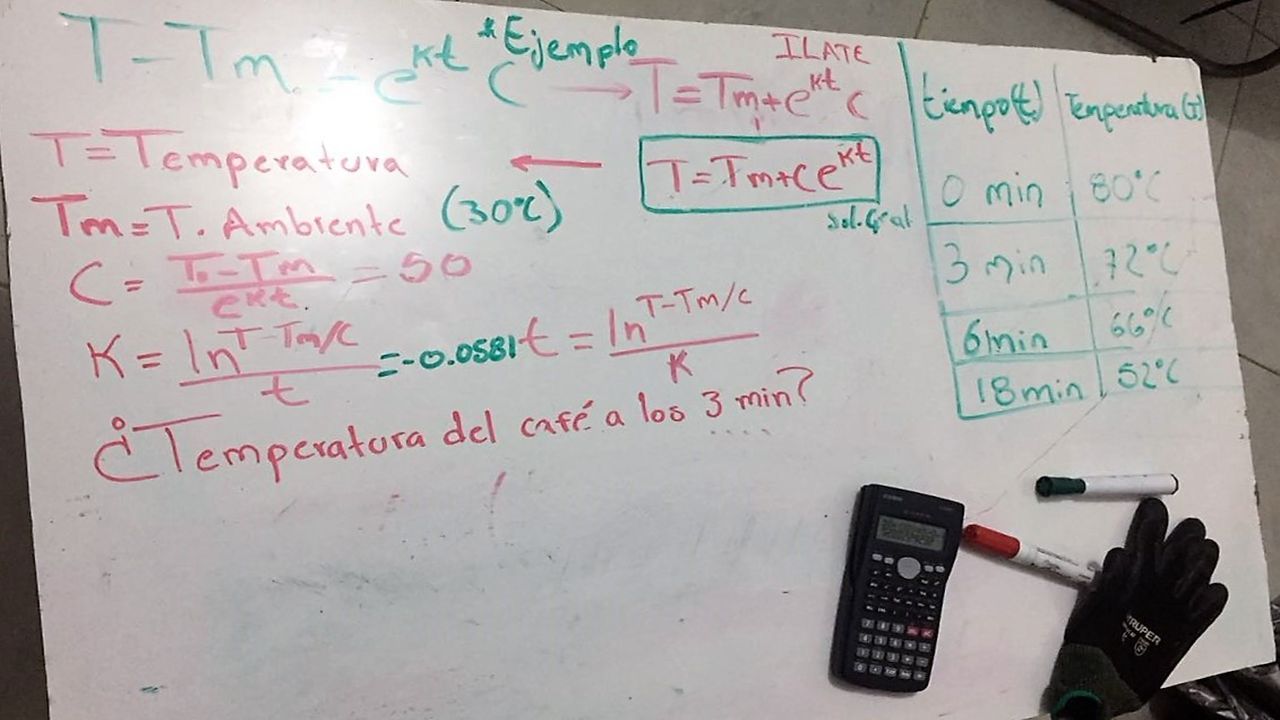 T - Tm = e^kt C → T = Tm + e^kt C
*Ejemplo
ILATE
T = Temperatura ← T = Tm + C e^kt
sol. Gral
Tm = T. Ambiente (30°C)
C = T₀ - Tm / e^kt = 50
K = ln^T-Tm/C / t = -0.0581 t = ln^T-Tm/C / K
¿Temperatura del café a los 3 min?
tiempo(t) Temperatura(T)
0 min 80°C
3 min 72°C
6 min 66°C
18 min 52°C
TRUPER